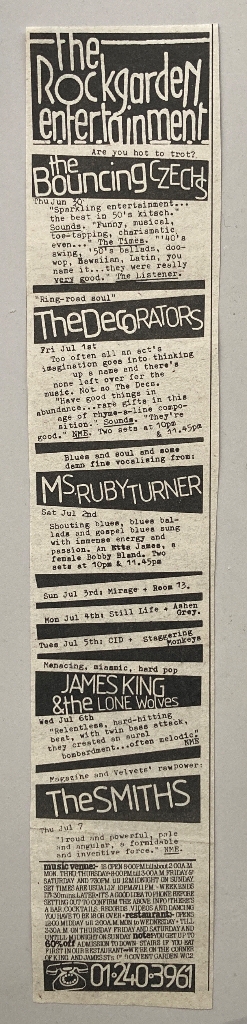 the
Rockgarden
entertainment
Are you hot to trot?
the
Bouncing CZECHS
Thu Jun 30
"Sparkling entertainment...
the best in 50's kitsch."
Sounds. "Funny, musical,
toe-tapping, charismatic
even..." The Times. "'40's
swing, '50's ballads, doo-
wop, Hawaiian, Latin, you
name it...they were really
very good." The Listener.
"Ring-road soul"
The DecORATORS
Fri Jul 1st
Too often all an act's
imagination goes into thinking
up a name and there's
none left over for the
music. Not so The Decs.
"Have good things in
abundance...rare gifts in this
age of rhyme-a-line compo-
sition." Sounds. "They're
good." NME. Two sets at 10pm
& 11.45pm
Blues and soul and some
damn fine vocalising from:
MS RUBY TURNER
Sat Jul 2nd
Shouting blues, blues bal-
lads and gospel blues sung
with immense energy and
passion. An Etta James, a
female Bobby Bland. Two
sets at 10pm & 11.45pm
Sun Jul 3rd: Mirage + Room 13.
Mon Jul 4th: Still Life + Ashen
Grey.
Tues Jul 5th: CID + Staggering
Monkeys
Menacing, miasmic, hard pop
JAMES KING
& the LONE Wolves
Wed Jul 6th
"Relentless, hard-hitting
beat, with twin bass attack,
they created an aural
bombardment...often melodic"
NME
Magazine and Velvets' raw power:
The SMITHS
Thu Jul 7
"Proud and powerful, pale
and angular, a formidable
and inventive force." NME.
music venue:- IS OPEN 8.00PM till about 2.00A.M.
MON. THRU THURSDAY-8.00PM till 3AM, FRIDAY &
SATURDAY AND 7.30PM till 12 MIDNIGHT ON SUNDAY.
SET TIMES ARE USUALLY 10PM & 11PM - WEEKENDS
30mins LATER - IT'S A GOOD IDEA TO PHONE BEFORE
SETTING OUT TO CONFIRM THE ABOVE INFO THERE'S
A BAR, COCKTAILS, RECORDS, VIDEOS AND DANCING
YOU HAVE TO BE 18 OR OVER • restaurant:- OPENS
TILL
2.30A.M. ON THURSDAY FRIDAY AND SATURDAY AND
UNTIL MIDNIGHT ON SUNDAY note: GET UP TO
60% off ADMISSION TO DOWN-STAIRS IF YOU EAT
FIRST IN OUR RESTAURANT - WE'RE ON THE CORNER
OF KING AND JAMES STS COVENT GARDEN WC2
01-240-3961